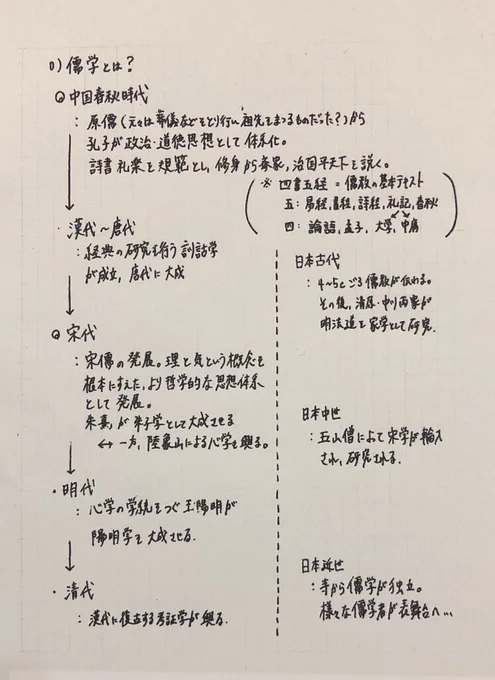 0) 儒学とは?
◎中国春秋時代
: 原儒(元々は葬儀などをとり行い祖先をまつるものだった?)から
孔子が政治・道徳思想として体系化。
詩書礼楽を規範とし、修身から斉家、治国平天下を説く。
(※ 四書五経 = 儒教の基本テキスト
五: 易経、書経、詩経、礼記、春秋
四: 論語、孟子、大学、中庸)
・漢代〜唐代
: 経典の研究を行う訓詁学
が成立、唐代に大成
◎宋代
: 宋儒の発展。理と気という概念を
根本にすえた、より哲学的な思想体系
として発展。
朱熹が朱子学として大成させる
↔ 一方、陸象山による心学も興る。
・明代
: 心学の学統をつぐ王陽明が
陽明学を大成させる.
・清代
: 漢代に復古する考証学が興る.
日本古代
: 4〜5cごろ儒教が伝わる。
その後、清原・中原両家が
明法道を家学として研究.
日本中世
: 五山僧によって宋学が輸入
され、研究される.
日本近世
: 寺から儒学が独立。
様々な儒学者が表舞台へ…